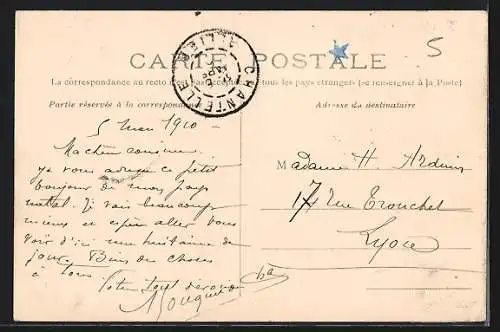 CARTE POSTALE
5
CHANTELLE
ALLIER
La correspondance au recto n'est pas acceptée par tous les pays étrangers (se renseigner à la Poste)
Partie réservée à la correspondance
Adresse du destinataire
5 Mai 1910
Ma chère cousine
je vous adresse ce petit
bonjour de mon pays
natal. Je vais beaucoup
mieux et espère aller vous
voir d'ici une huitaine de
jours. Bien des choses
à tous.
Votre tout dévoué
M adame H Arduin
17 rue Tronchet
Lyon